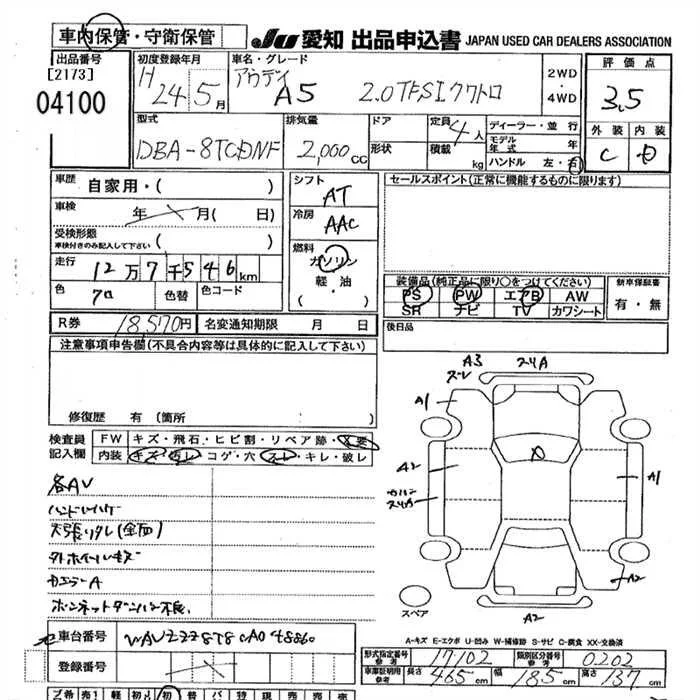 車内保管・守衛保管
JU 愛知 出品申込書 JAPAN USED CAR DEALERS ASSOCIATION
出品番号
[2173]
04100
初度登録年月
H 24年 5月
車名・グレード
アウディ A5 2.0TFSIクワトロ
2WD
4WD
評価点
3.5
外装 内装
C D
型式
DBA-8TCDNF
排気量
2,000cc
ドア
形状
定員 4人
積載 kg
ディーラー・並行
モデル年式 年
ハンドル 左・右
車歴 自家用・( )
車検 年 月( 日)
受検形態
車検付きのみ記入して下さい ( )
走行 12万7千546km
色 クロ 色替 色コード
シフト
AT
冷房
AAC
燃料
ガソリン
軽・油
( )
セールスポイント(正常に機能するものに限ります)
装備品(純正品に限り○をつけてください)
PS PW エアB AW
SR ナビ TV カワシート
新車保証書
有・無
後日品
R券 18,570円 名変通知期限 月 日
注意事項申告欄(不具合内容等は具体的に記入して下さい)
修復歴 有(箇所 )
検査員記入欄
FW キズ・飛石・ヒビ割・リペア跡・X要
内装 キズ・汚レ・コゲ・穴・スレ・キレ・破レ
各AV
天張リタレ(全面)
外ホイールキズ
ボンネットダンパー不良
A3 スリA
ズレ
A1
A2
A1
スリA
A2
A2
スペア
A-キズ E-エクボ U-凹み W-補修跡 S-サビ C-腐食 XX-交換済
車台番号 WAUZZZ8T8CA048060
登録番号
形式指定番号
参考 17102
類別区分番号
参考 0202
車庫証明用
参考 長さ 465cm 幅 185cm 高さ 137cm